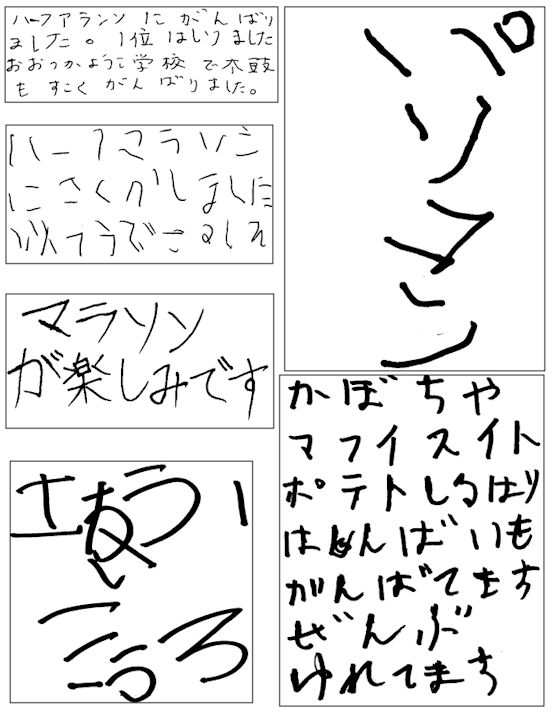 ハーフマランソにがんばり
ました。1位はいりました
おおつかようご学校で太鼓
もすこくがんばりました。
ハーフマラソン
にさくがしました
マラソン
が楽しみです
こころ
パソマン
かぼちゃ
マフイスイト
ポテトしるばり
がんばてまち
ぜんぶ
ゆれてまち